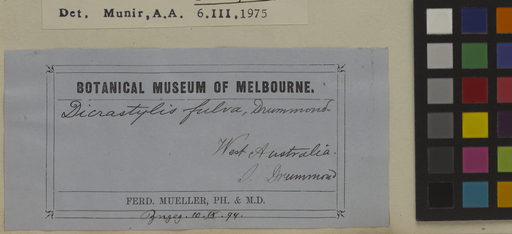 Det. Munir, A.A. 6.III, 1975
BOTANICAL MUSEUM OF MELBOURNE.
Dicrastylis fulva, Drummond.
West Australia.
J. Drummond
FERD. MUELLER, PH. & M.D.
10. IX. 94.